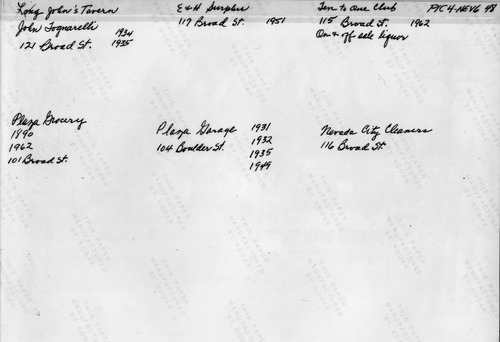 Long John's Tavern
John Tognarelli 1934
121 Broad St. 1935
E & H Surplus
117 Broad St. 1951
Ten to One Club
115 Broad St. 1962
On & off sale liquor
PIC 4-NEV6 48
Plaza Grocery
1890
1962
101 Broad St.
Plaza Garage 1931
104 Boulder St. 1932
1935
1949
Nevada City Cleaners
116 Broad St.